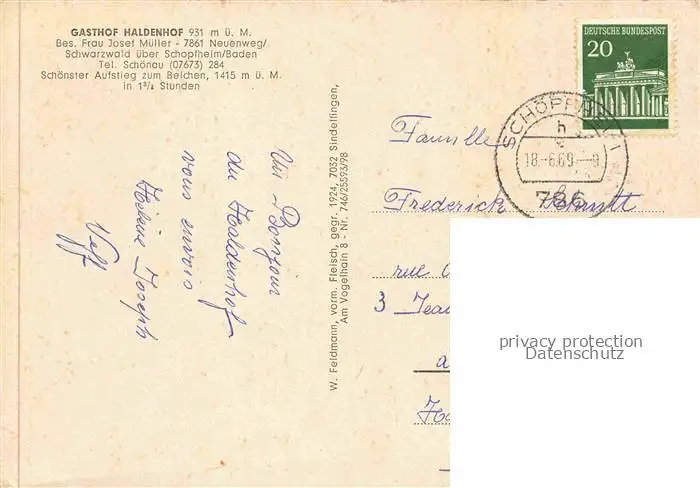 GASTHOF HALDENHOF 931 m ü. M.
Bes. Frau Josef Müller - 7861 Neuenweg/
Schwarzwald über Schopfheim/Baden
Tel. Schönau (07673) 284
Schönster Aufstieg zum Belchen, 1415 m ü. M.
in 1³/₄ Stunden
Un Bonjour
du Haldenhof
vous envois
Joseph
W. Feldmann, vorm. Fleisch, gegr. 1924, 7032 Sindelfingen,
Am Vogelhain 8 - Nr. 746/25593/98
DEUTSCHE BUNDESPOST
20
h
18.-6.69.--9
786
Famille
Frederich Schmitt
rue
3 Jean
privacy protection
Datenschutz